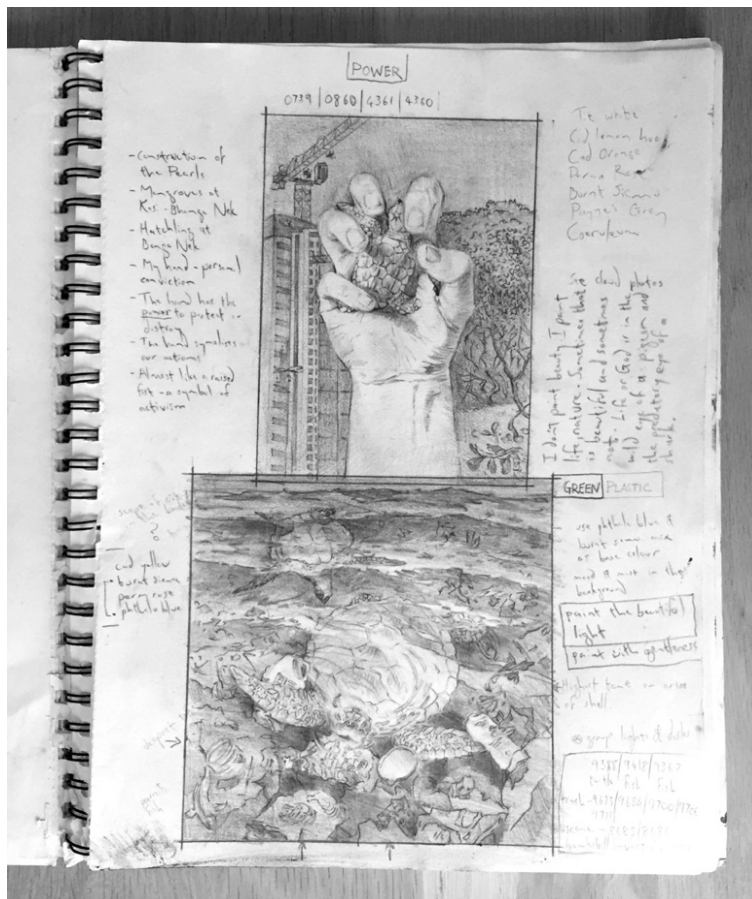 POWER
0739 | 0860 | 4361 | 4360
- Construction of
the Pearls
- Mangroves at
Kosi - Bhanga Nek
- Hatchling at
Banga Nek
- My hand - personal
conviction
- The hand has the
power to protect or
destroy
- The hand symbolises
our actions
- Almost like a raised
fist - a symbol of
activism
Ti white
Cad lemon
Cad Orange
Perm Rose
Burnt Sienna
Payne's Grey
Coeruleum
I don't paint beauty, I paint
life, nature. Sometimes that is
is beautiful and sometimes
not. Life or God is in the
eye of a pigeon and
the predatory eye of a
shark.
cloud photos
GREEN PLASTIC
use phthalo blue &
burnt sienna mix
as base colour
mood & mist in
background
paint the beautiful
light
paint with gentleness
Highest on areas
of shell
group lights & darks
?
cad yellow
burnt sienna
perm rose
phthalo blue